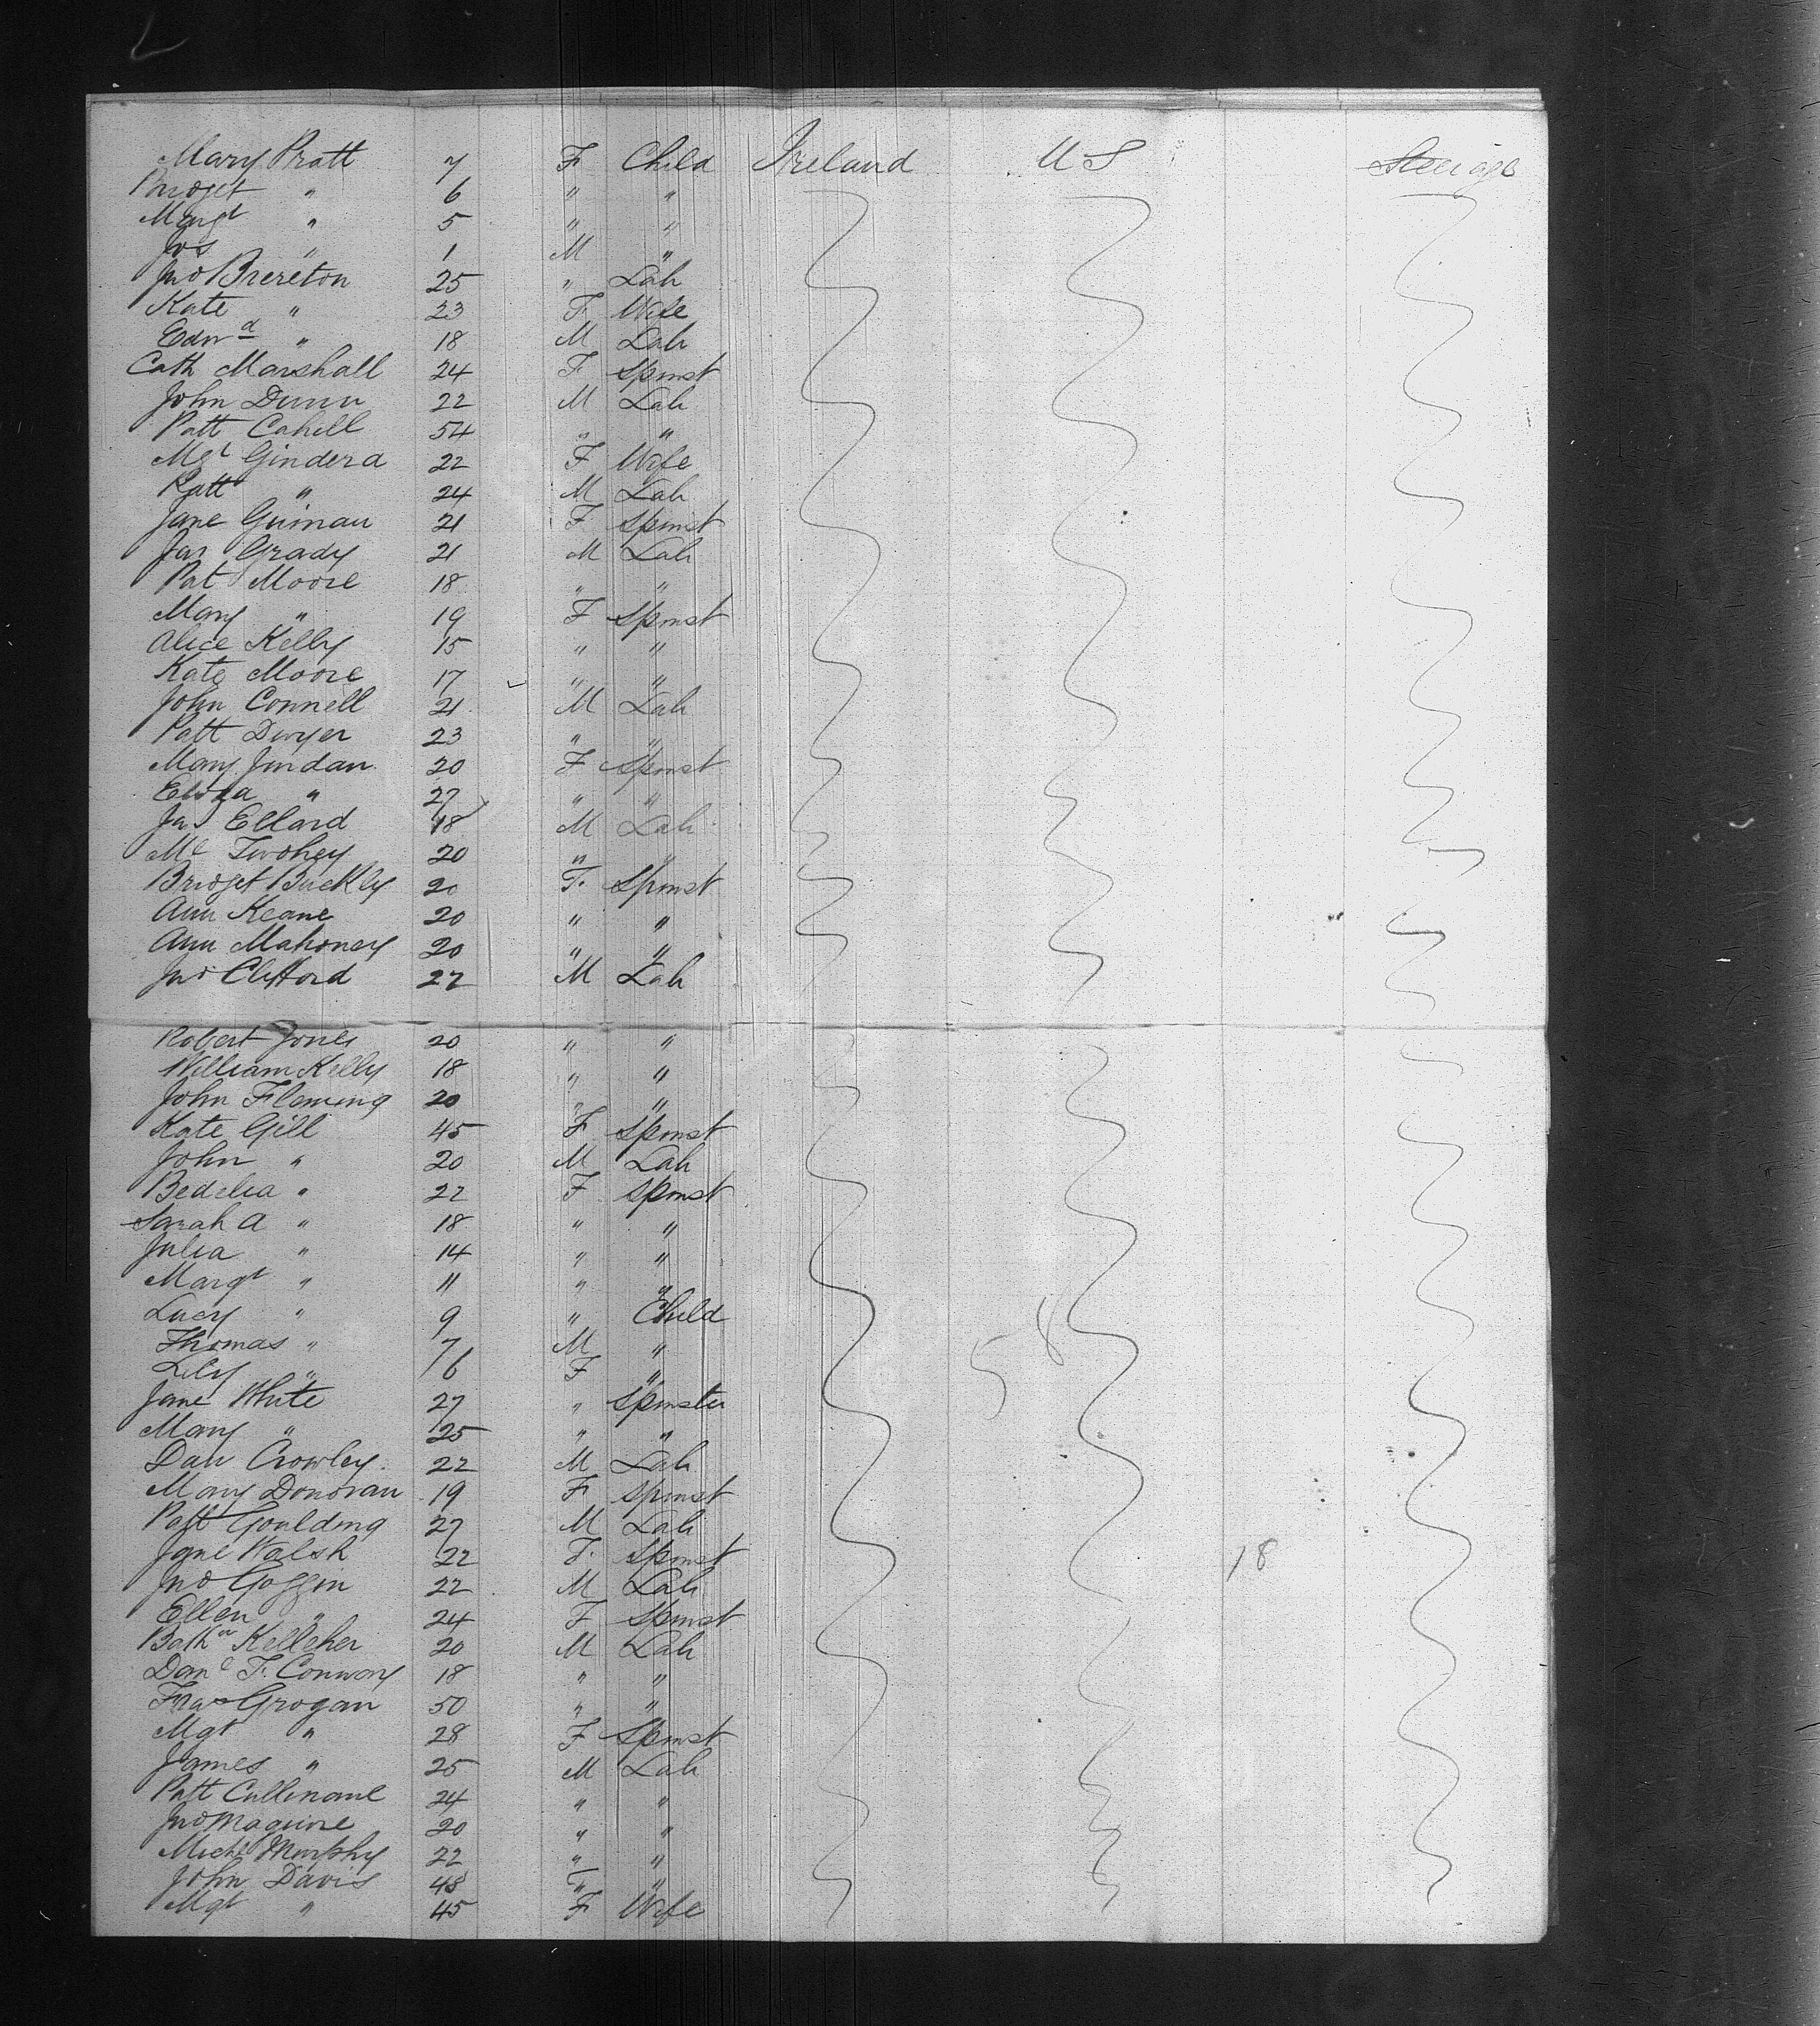 Mary Pratt 7 F Child Ireland U S Steerage
Bridget " 6 " "
Margt " 5 " "
Jos " 1 M "
Jno Brereton 25 " Lab
Kate " 23 F Wife
Edwd " 18 M Lab
Cath Marshall 24 F Spinst
John Dunn 22 M Lab
Patt Cahill 54 " "
Mgt Gindera 22 F Wife
Patt " 24 M Lab
Jane Guinau 21 F Spinst
Jas Grady 21 M Lab
Pat Moore 18 " "
Mary " 19 F Spinst
Alice Kelly 15 " "
Kate Moore 17 " "
John Connell 21 M Lab
Patt Dwyer 23 " "
Mary Jurdan 20 F Spinst
Eliza " 27 " "
Jas Ellard 18 M Lab
Ml Twohey 20 " "
Bridget Buckley 20 F. Spinst
Ann Keane 20 " "
Ann Mahoney 20 " "
Jno Clifford 22 M Lab
Robert Jones 20 " "
William Kelly 18 " "
John Fleming 20 " "
Kate Gill 45 F Spinst
John " 20 M Lab
Bedelia " 22 F Spinst
Sarah A " 18 " "
Julia " 14 " "
Margt " 11 " "
Lucy " 9 " Child
Thomas " 7 M "
Lily " 6 F "
58
Jane White 27 " Spinster
Mary " 25 " "
Dan Crowley 22 M Lab
Mary Donovan 19 F Spinst
Patt Goulding 27 M Lab
Jane Walsh 22 F. Spinst 18
Jno Goggin 22 M Lab
Ellen " 24 F Spinst
Bathw Kelleher 20 M Lab
Danl F. Conway 18 " "
Fras Grogan 50 " "
Mgt " 28 F Spinst
James " 25 M Lab
Patt Cullinane 24 " "
Jno Maguire 20 " "
Michl Murphy 22 " "
John Davis 48 " "
Mgt " 45 F Wife